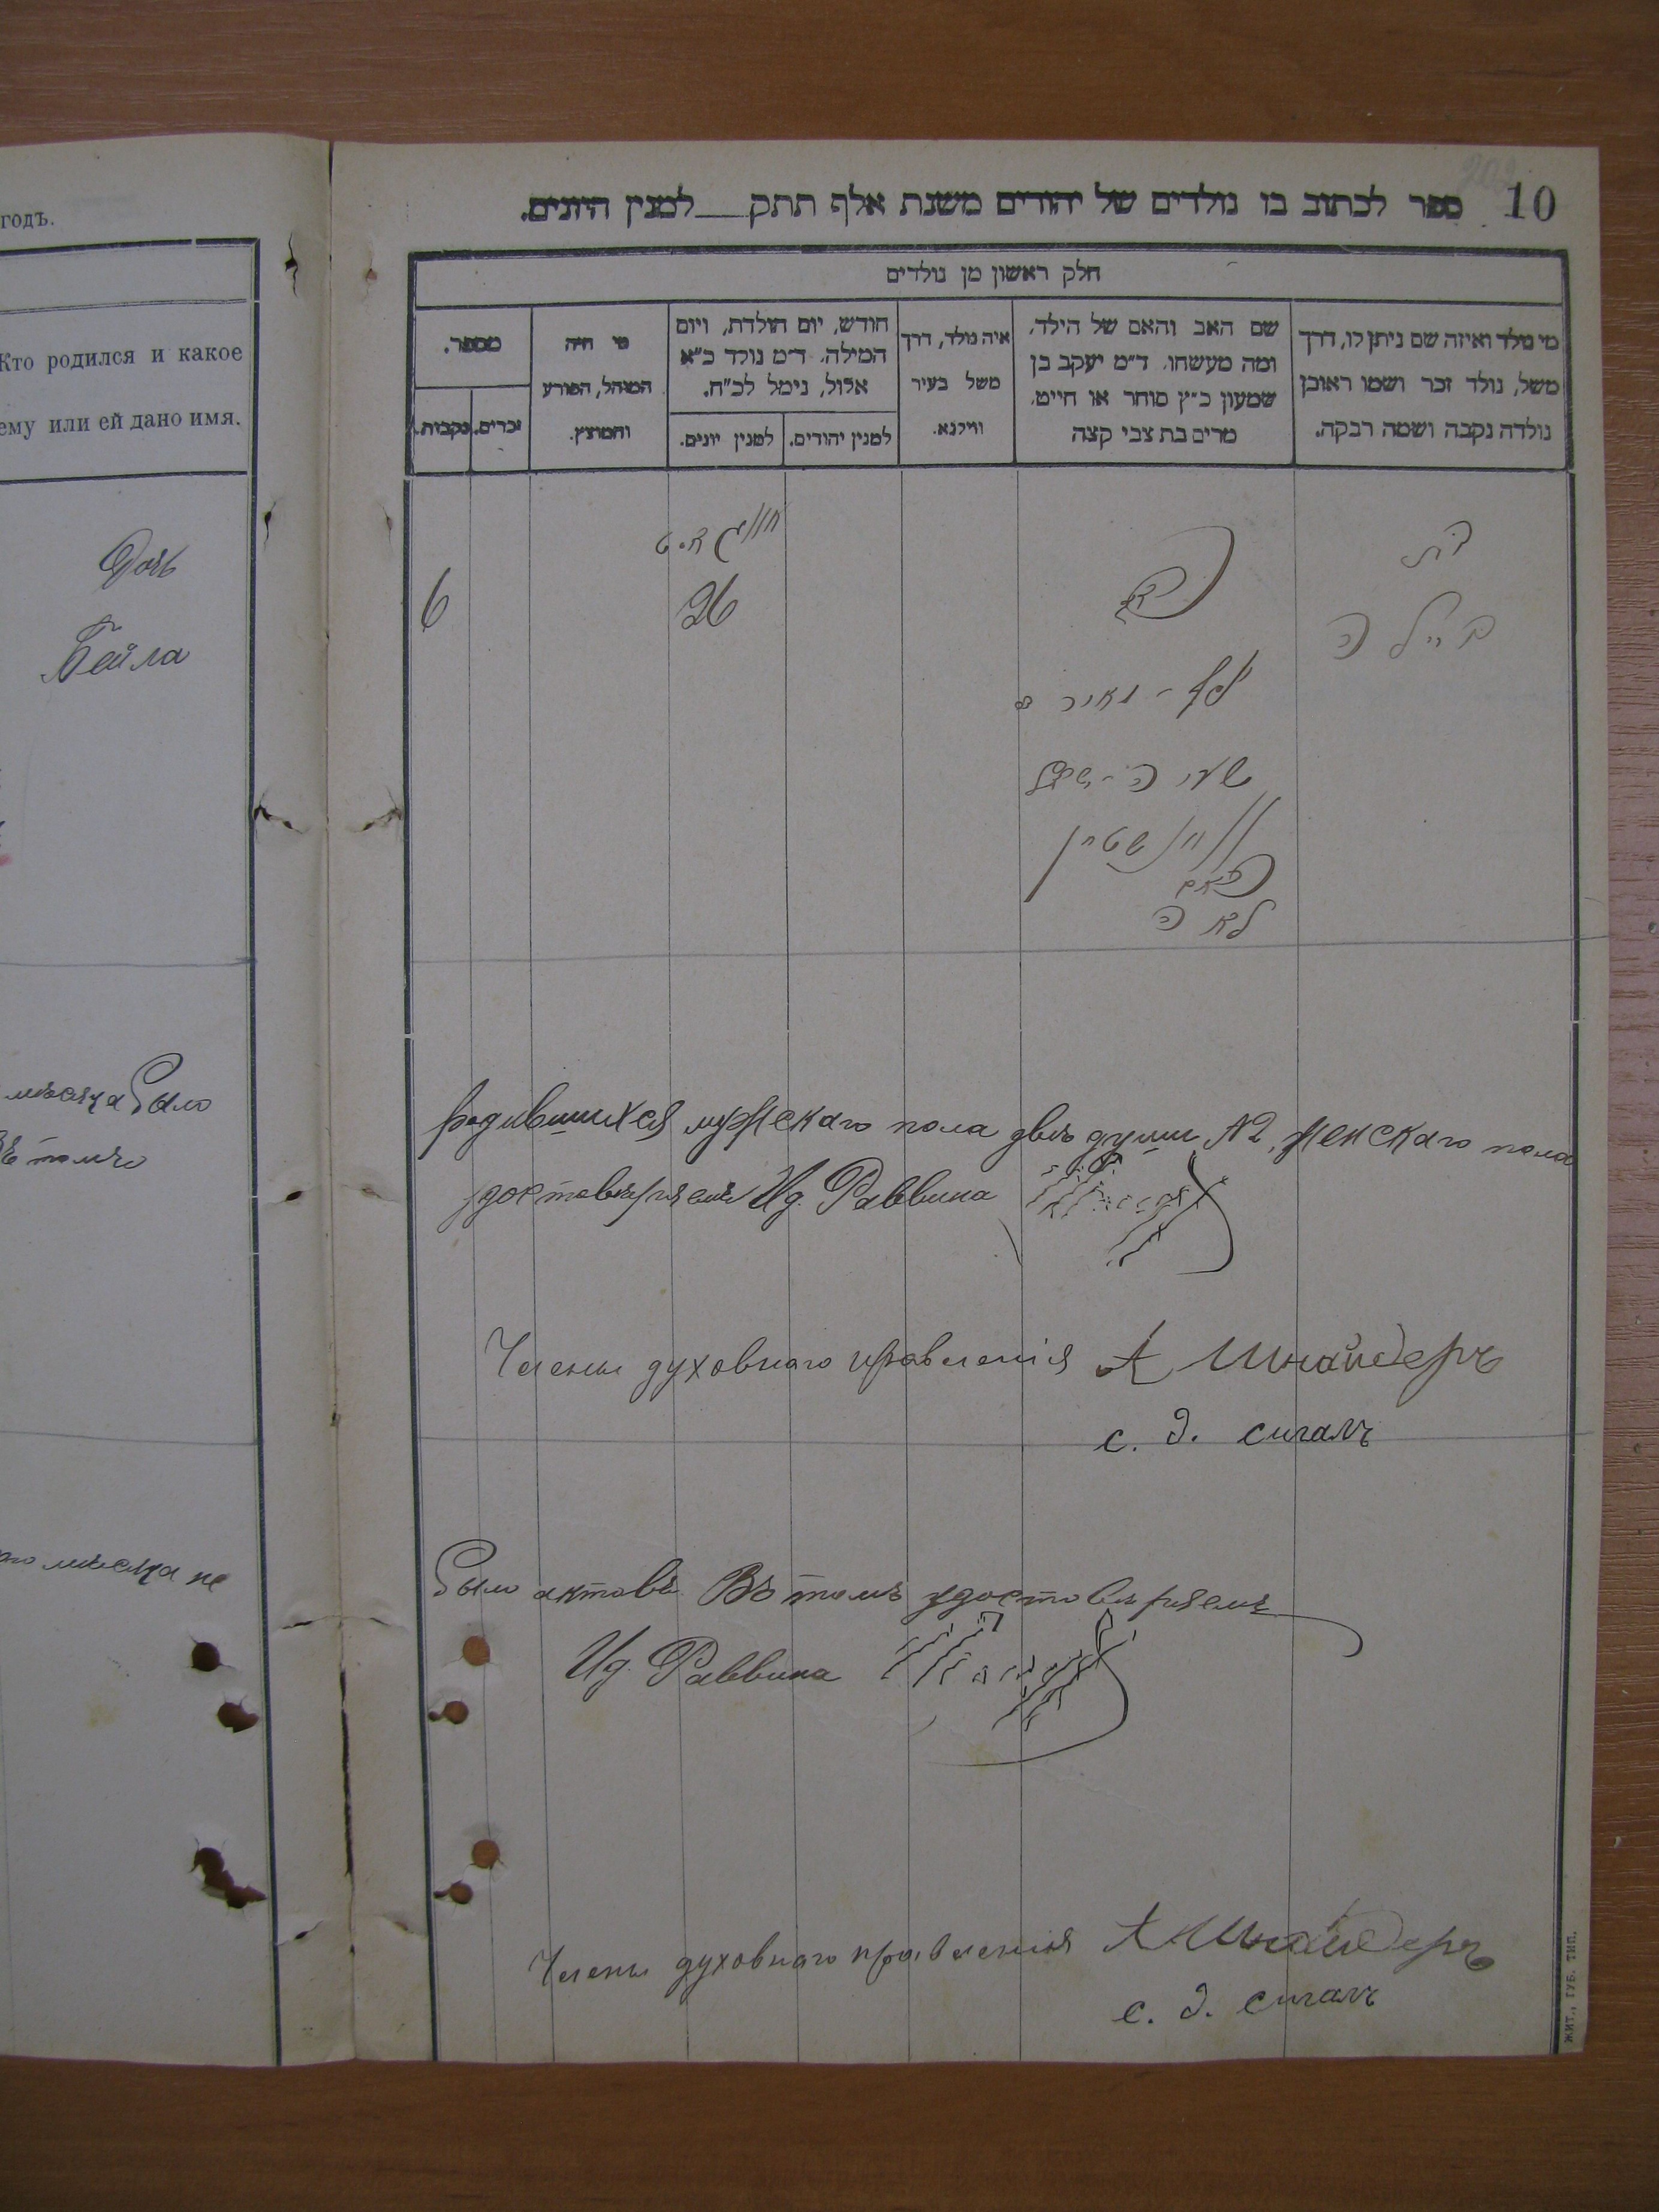 годъ.
Кто родился и какое
ему или ей дано имя.
Дочь
Бейла
мѣсяца было
томъ
мѣсяца не
10
ספר לכתוב בו נולדים של יהודים משנת אלף תתק___למנין היונים.
חלק ראשון מן נולדים
מי נולד ואיזה שם ניתן לו, דרך
משל, נולד זכר ושמו ראובן
נולדה נקבה ושמה רבקה.
שם האב והאם של הילד,
ומה מעשהו. ד״מ יעקב בן
שמעון כ״ץ סוחר או חייט.
מרים בת צבי קצה
איה נולד, דרך
משל בעיר
ווילנא.
חודש, יום הולדת, ויום
המילה. ד״מ נולד כ״א
אלול, נימל לכ״ח.
למנין יהודים.
למנין יונים.
מי היה
המוהל, הפורע
והמוצץ.
מספר.
זכרים.
נקבות.
בת
ביילה
26
6
לאה
родившихся мужескаго пола двѣ души №2, женскаго пола
удостовѣряемъ Ид. Раввина
Члены духовнаго правленія А Шнайдеръ
с. д. сигалъ
было актовъ. Въ томъ удостовѣряемъ
Ид. Раввина
Члены духовнаго правленія А Шнайдеръ
с. д. сигалъ
ЖИТ., ГУБ. ТИП.